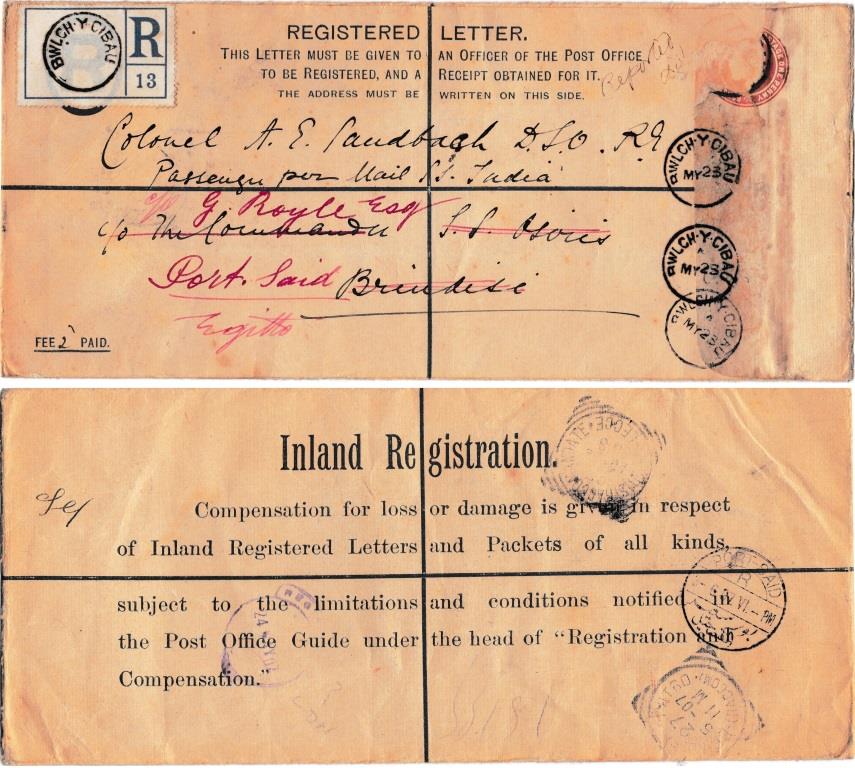 BWLCH-Y-CIBAU
R
13
REGISTERED LETTER.
THIS LETTER MUST BE GIVEN TO AN OFFICER OF THE POST OFFICE
TO BE REGISTERED, AND A RECEIPT OBTAINED FOR IT.
THE ADDRESS MUST BE WRITTEN ON THIS SIDE.
Colonel A. E. Sandbach D.S.O. R.E
Passenger per Mail S.S. India
c/o G. Royle Esq
c/o The Commander S.S. Osiris
Port Said Brindisi
Egitto
FEE 2 PAID.
BWLCH-Y-CIBAU
MY 23
BWLCH-Y-CIBAU
MY 23
BWLCH-Y-CIBAU
MY 23
Inland Registration.
Compensation for loss or damage is given in respect
of Inland Registered Letters and Packets of all kinds,
subject to the limitations and conditions notified in
the Post Office Guide under the head of "Registration and
Compensation."
PORT SAID
27
5-07
11 M